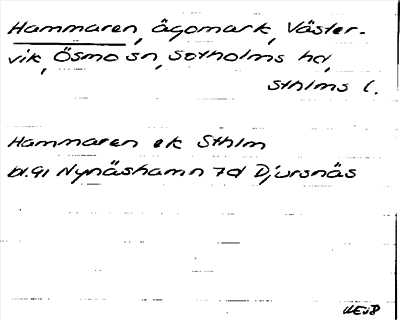 Hammaren, ägomark, Väster-
vik, Ösmo sn, Sotholms hd,
Sthlms l.
Hammaren ek Sthlm
bl.91 Nynäshamn 7d Djursnäs